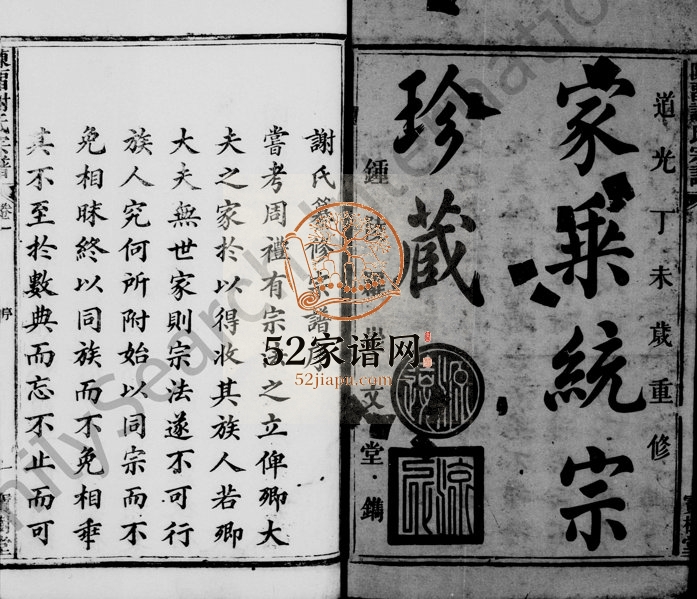 道光丁未歳重修
家乗統宗
珍蔵
鍾
堂鐫
謝氏 修宗譜序
嘗考周禮有宗法之立俾卿大
夫之家於以得收其族人若卿
大夫無世家則宗法遂不可行
族人究何所附始以同宗而不
免相昧終以同族而不免相乖
其不至於數典而忘不止而可
謝氏宗譜
卷一
序
一
52家谱网
52jiapu.com